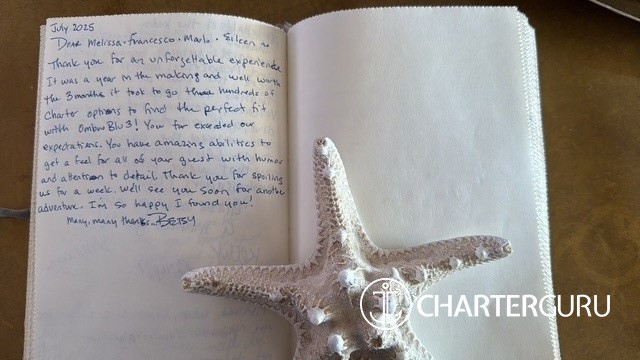 July 2025
Dear Melissa · Francesco · Mario · Eileen
Thank you for an unforgettable experience
It was a year in the making and well worth
the 3 months it took to go thru hundreds of
charter options to find the perfect fit
with OmbuBlu3! You far exceeded our
expectations. You have amazing abilities to
get a feel for all of your guest with humor
and attention to detail. Thank you for spoiling
us for a week. We'll see you soon for another
adventure. I'm so happy I found you!
Many, many thanks... BETSY
CHARTERGURU